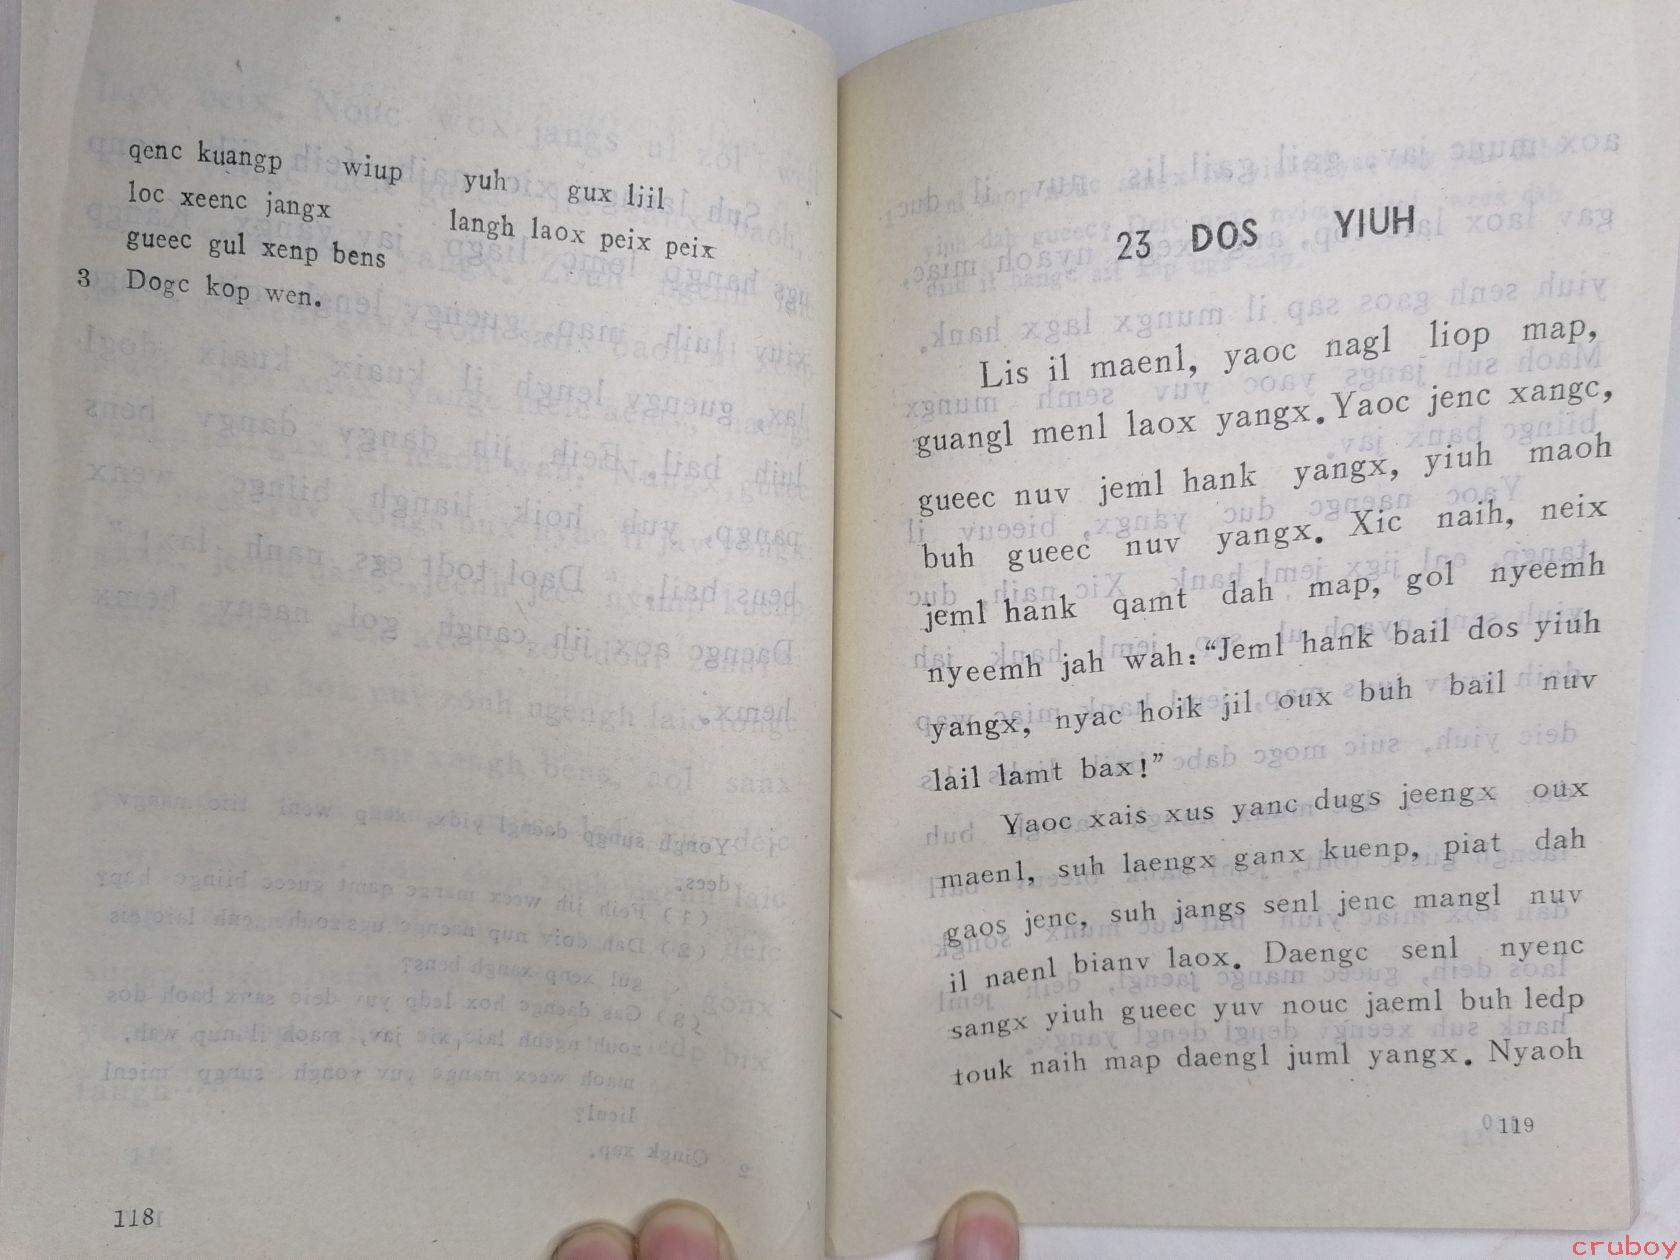 qenc kuangp wiup yuh gux liil
loc xeenc jangx langh laox peix peix
gueec gul xenp bens
3 Dogc kop wen.
118
23 DOS YIUH
Lis il maenl, yaoc nagl liop map,
guangl menl laox yangx. Yaoc jenc xangc,
gueec nuv jeml hank yangx, yiuh maoh
buh gueec nuv yangx. Xic naih, neix
jeml hank qamt dah map, gol nyeemh
nyeemh jah wah: “Jeml hank bail dos yiuh
yangx, nyac hoik jil oux buh bail nuv
lail lamt bax!”
Yaoc xais xus yanc dugs jeengx oux
maenl, suh laengx ganx kuenp, piat dah
gaos jenc, suh jangs senl jenc mangl nuv
il naenl bianv laox. Daengc senl nyenc
sangx yiuh gueec yuv nouc jaeml buh ledp
touk naih map daengl juml yangx. Nyaoh
119
cruboy